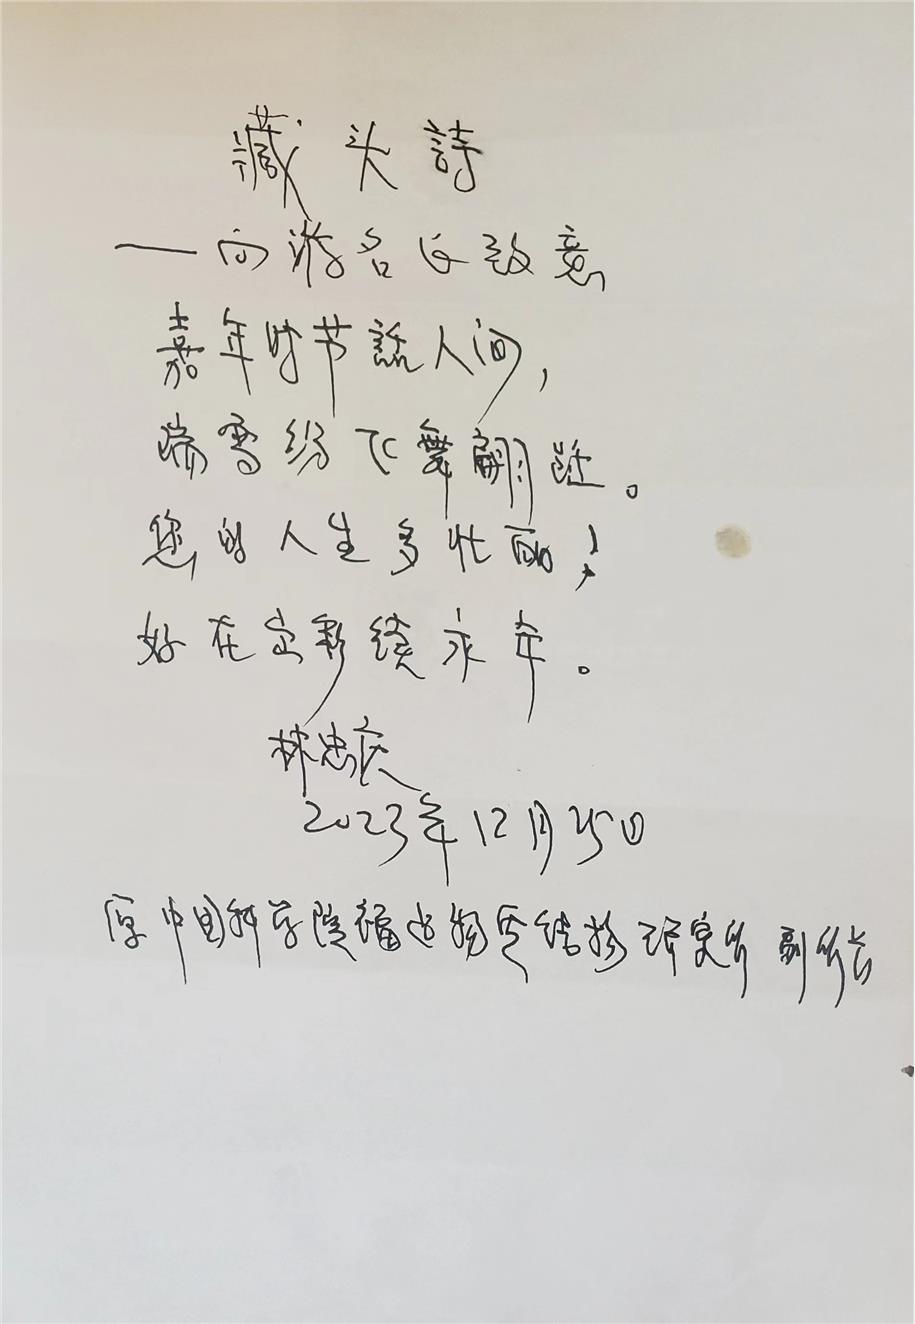 藏头詩
——向游名长致意
嘉年时节話人间，
瑞雪纷飞舞翩跹。
您的人生多壮丽！
好在出彩续永年。
林忠庆
2023年12月25日
原中国科学院福建物质结构研究所副所长